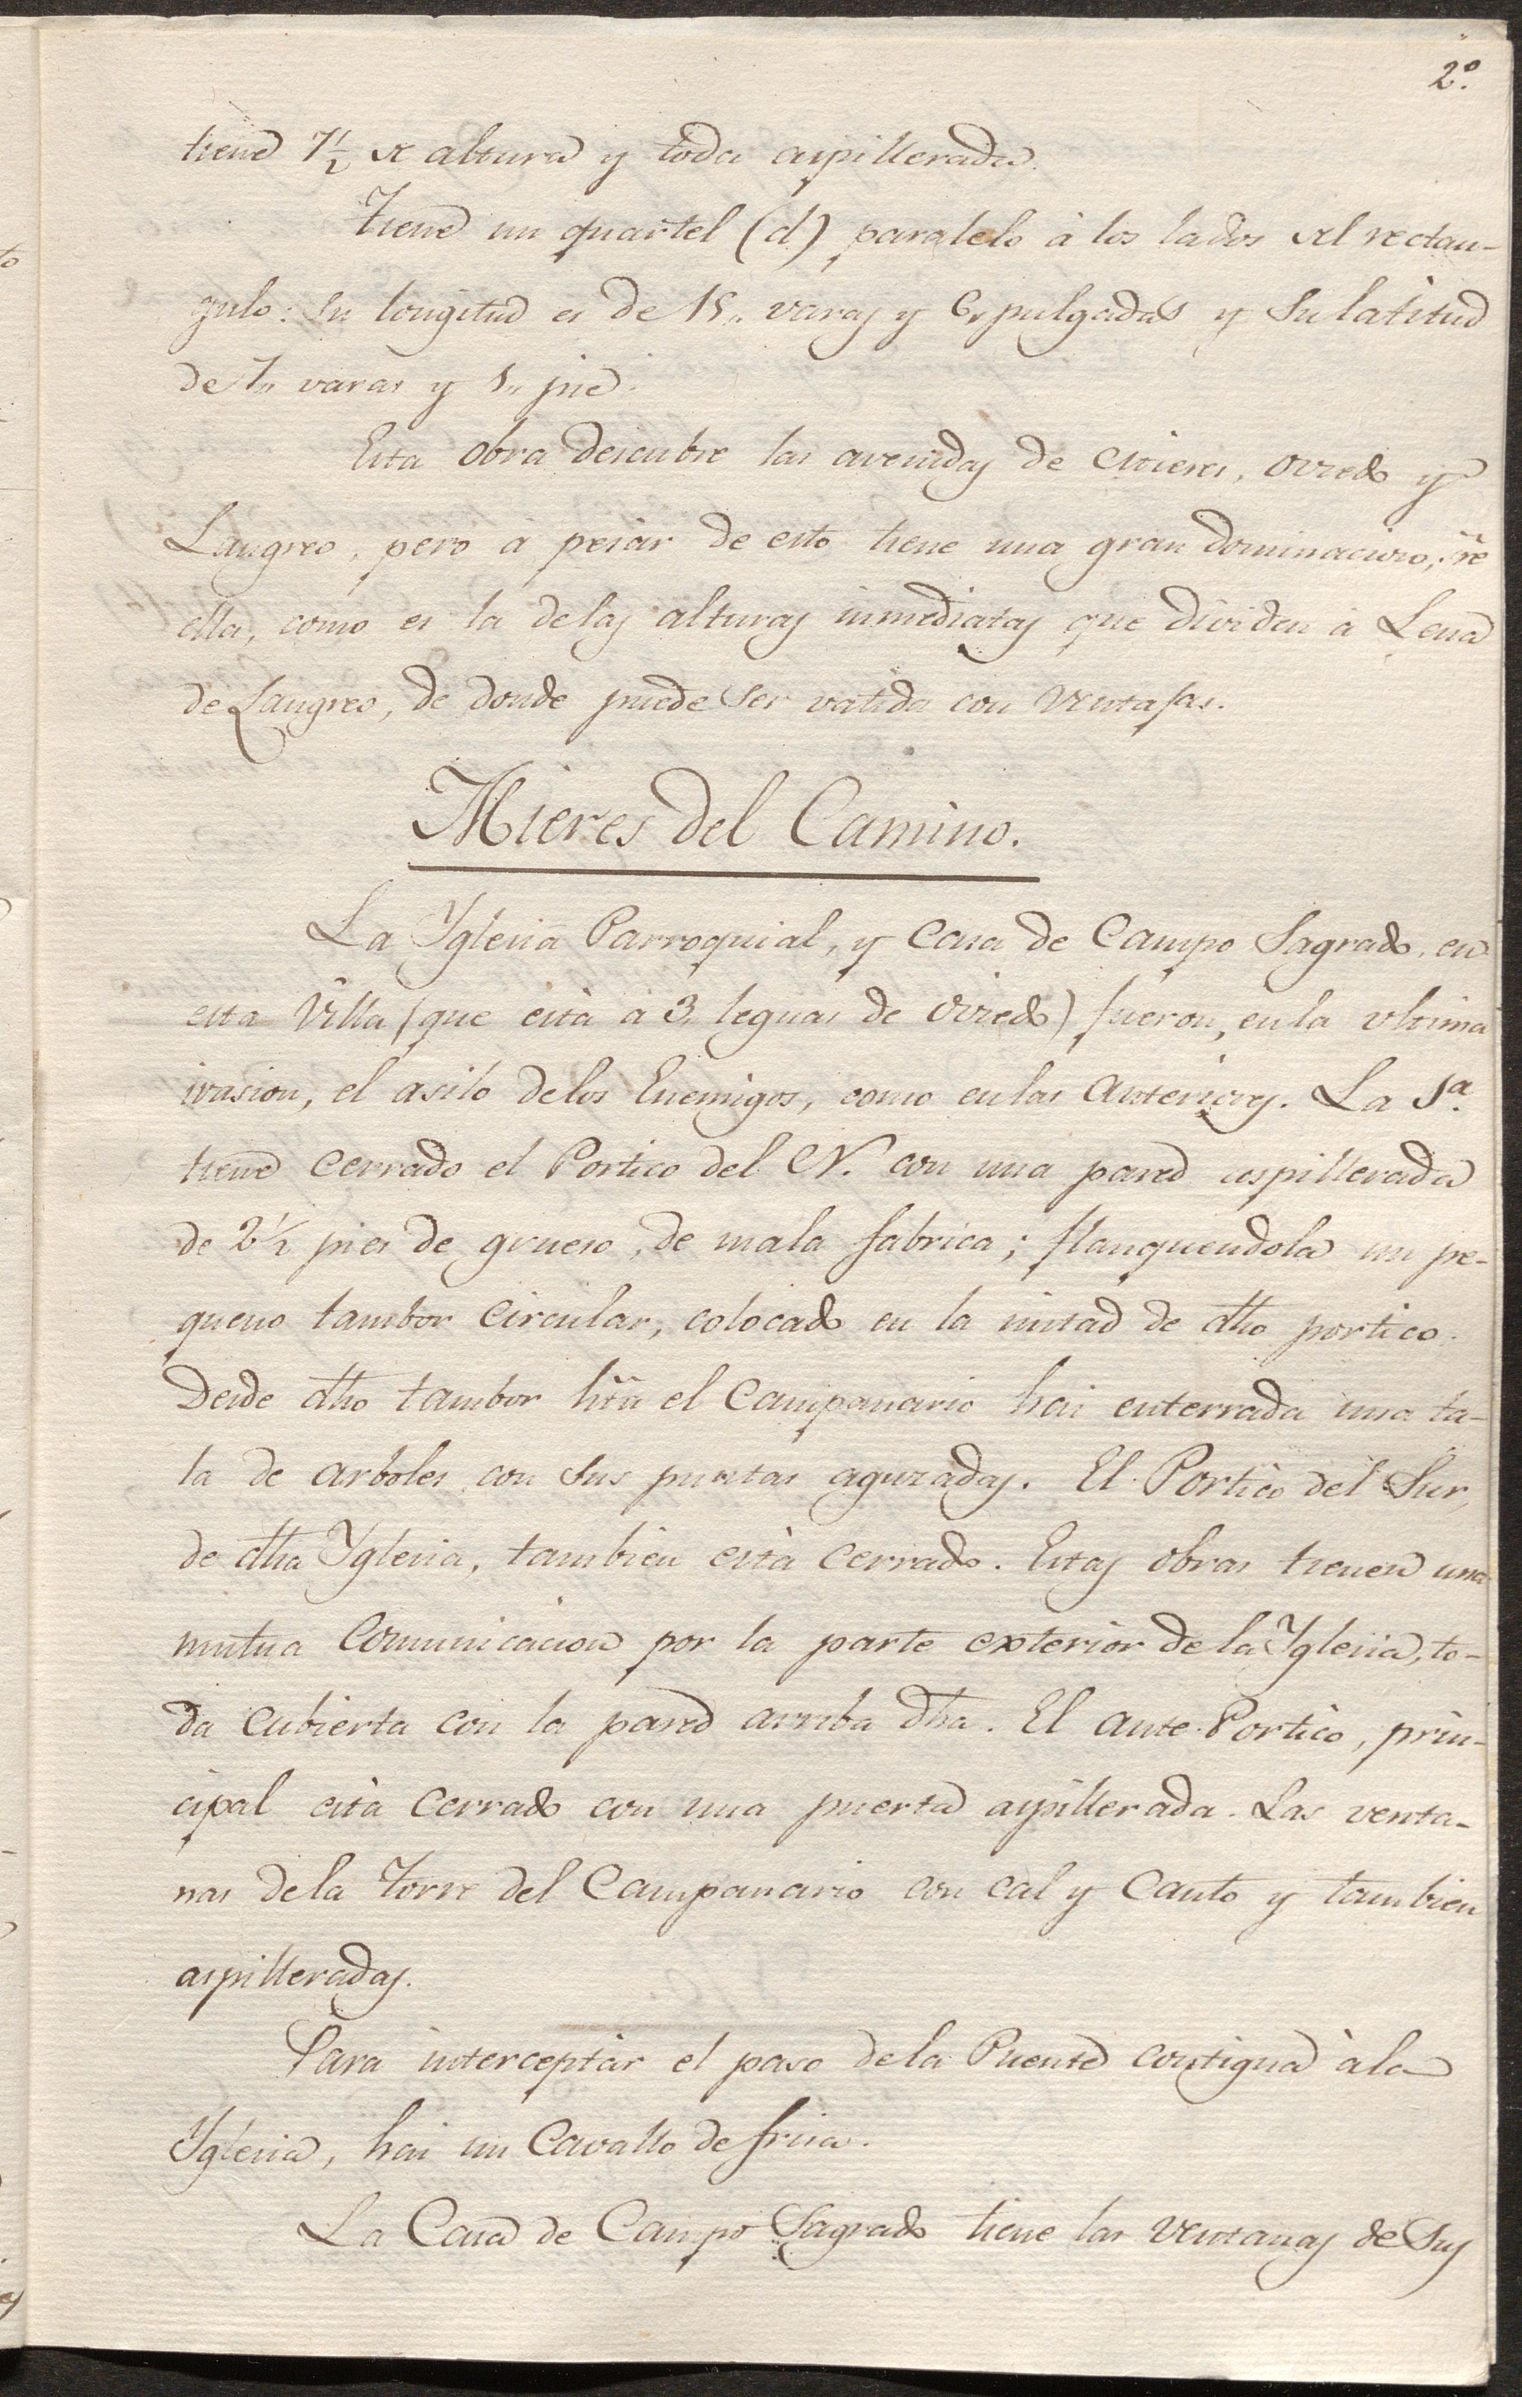 2º.
tiene 7½ de altura y toda aspillerada.
Tiene un quartel (d) paralelo à los lados del rectan-
gulo: Su longitud es de 15,, varas y 6,, pulgadas y Su latitud
de 7,, varas y 1,, pie.
Esta obra descubre las avenidas de Mieres, Oviedo y
Langreo, pero à pesar de esto tiene una gran dominacion, sre
ella, como es la delas alturas inmediatas que dividen à Lena
de Langreo, de donde puede Ser vatida con Ventajas.
Mieres del Camino.
La Yglesia Parroquial, y Casa de Campo Sagrado, en
esta Villa (que està à 3,, leguas de Oviedo) fueron, en la vltima
ivasion, el asilo delos Enemigos, como en las Anteriores. La 1ª.
tiene Cerrado el Portico del N. con una pared aspillerada
de 2½ pies de grueso, de mala fabrica; flanquendola un pe-
queno tambor Circular, colocado en la mitad de dho portico.
Desde dho tambor hta el Campanario hai enterrada una ta-
la de arboles con Sus puntas aguzadas. El Portico del Sur,
de dha Yglesia, tambien està Cerrado. Estas obras tienen una
mutua Comunicacion por la parte exterior de la Yglesia, to-
da Cubierta con la pared arriba dha. El ante Portico, prin-
cipal està Cerrado con una puerta aspillerada. Las venta-
nas dela Torre del Campanario con cal y Canto y tambien
aspilleradas.
Para interceptar el paso dela Puente contigua à la
Yglesia, hai un Cavallo de frisa.
La Casa de Campo Sagrado tiene las Ventanas de Sus